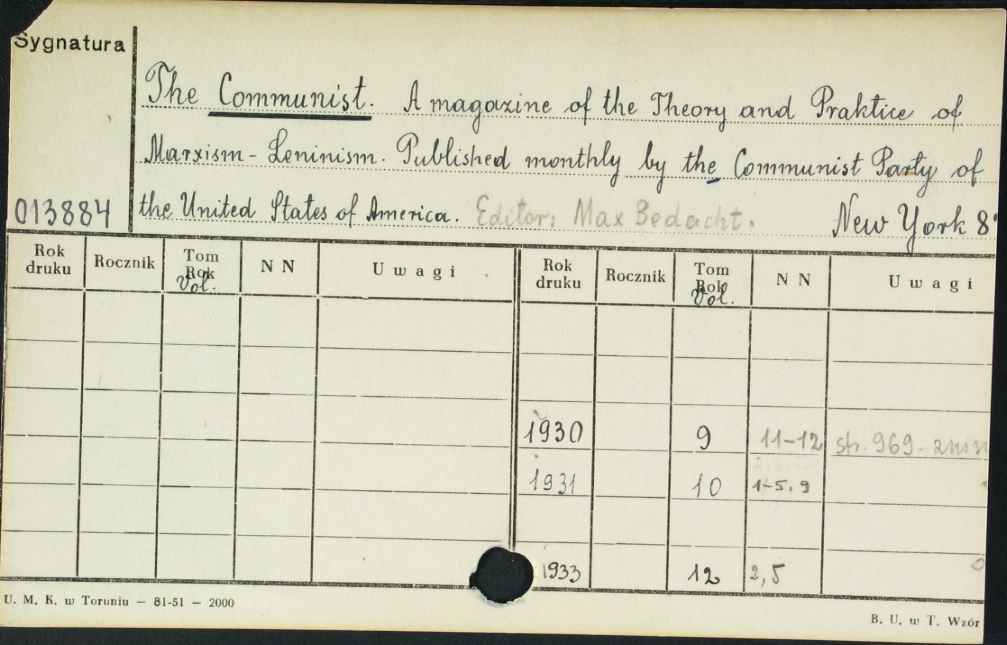 Sygnatura
The Communist. A magazine of the Theory and Praktice of
Marxism - Leninism. Published monthly by the Communist Party of
013884 the United States of America. Editor: Max Bedacht. New York 8°
Rok druku Rocznik Tom Rok Vol. N N Uwagi Rok druku Rocznik Tom Rok Vol. N N Uwagi
1930 9 11-12 str. 969-
1931 10 1-5. 9
1933 12 2,5
U. M. K. w Toruniu — 81-51 — 2000
B. U. w T. Wzór